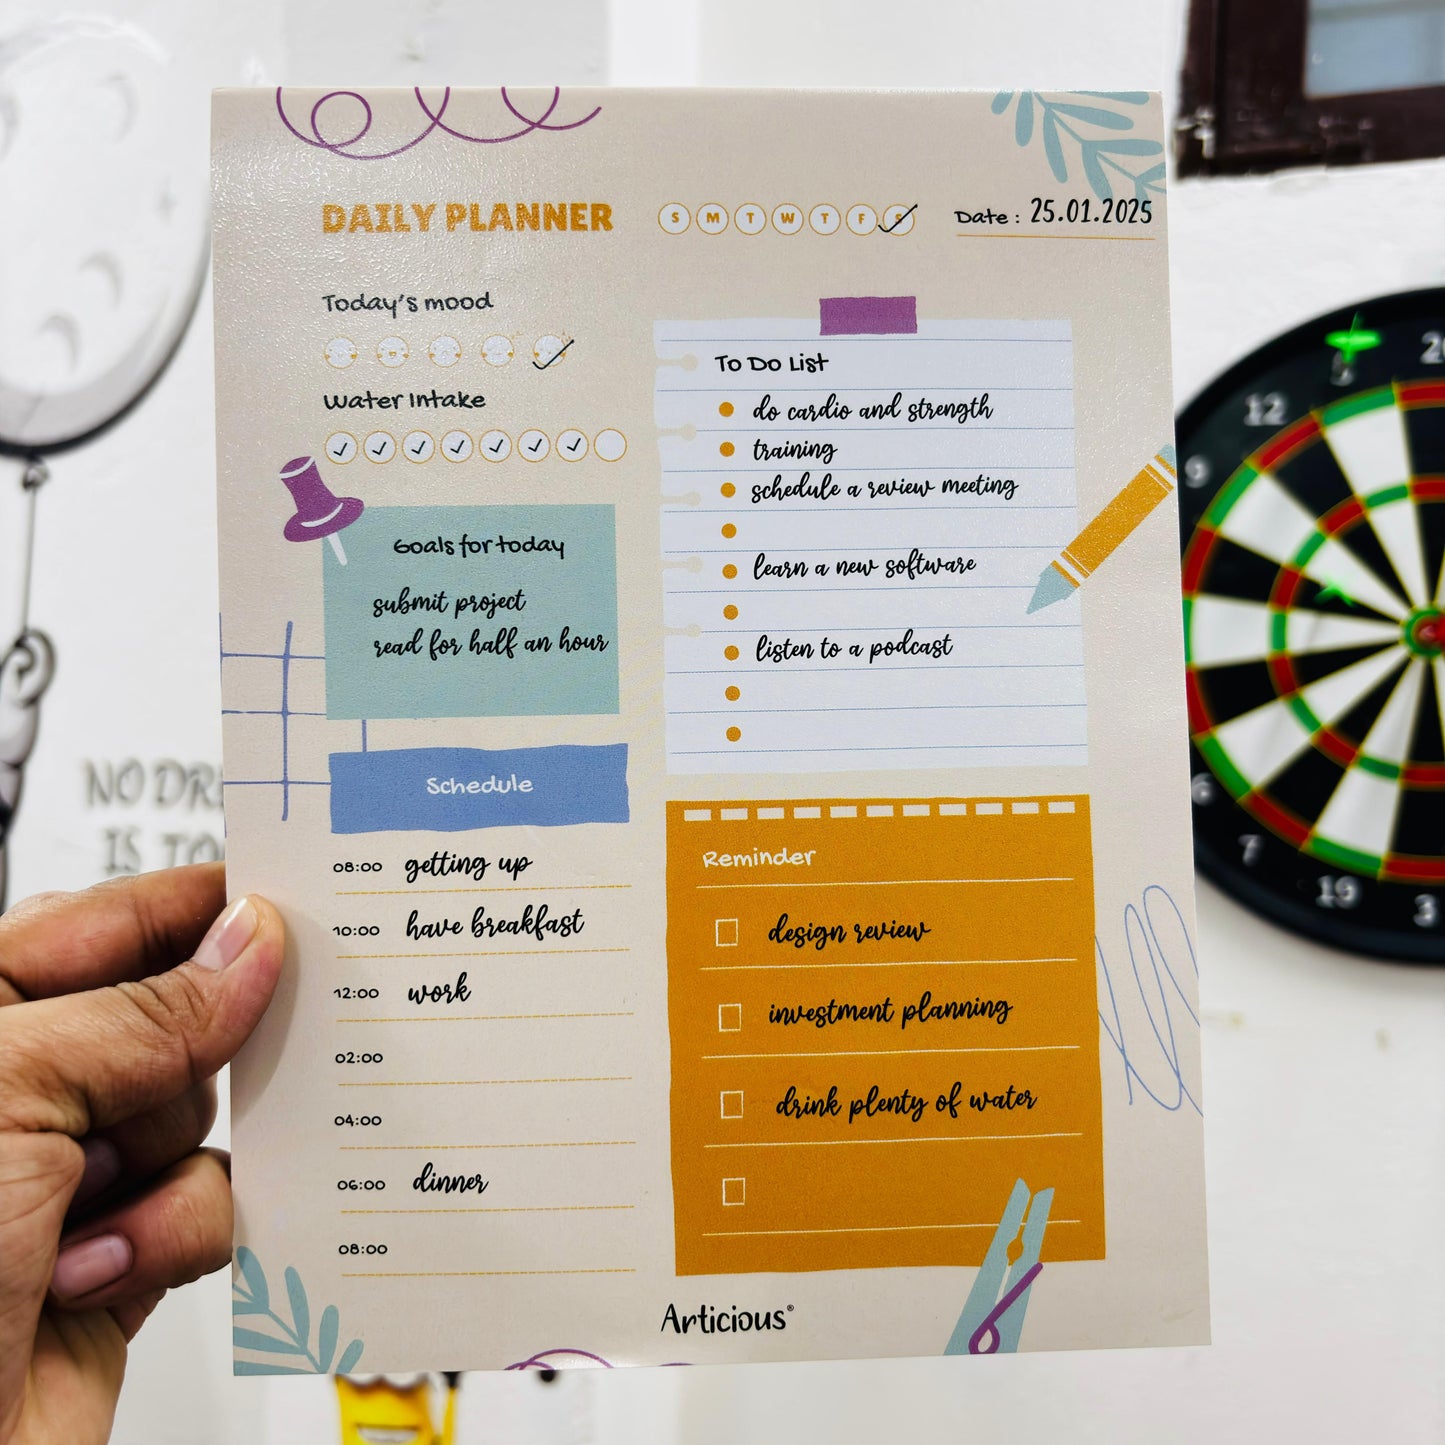 DAILY PLANNER
S M T W T F S
Date : 25.01.2025
Today's mood
Water Intake
Goals for today
submit project
read for half an hour
Schedule
08:00 getting up
10:00 have breakfast
12:00 work
02:00
04:00
06:00 dinner
08:00
To Do List
do cardio and strength
training
schedule a review meeting
learn a new software
listen to a podcast
Reminder
design review
investment planning
drink plenty of water
Articious®
NO DRE
IS TO
12
9
7
19
3